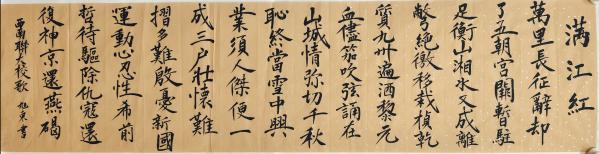 满江红
萬里長征辭却
了五朝宮闕暫駐
足衡山湘水又成離
別絕徼移栽楨乾
質九州遍洒黎元
血儘笳吹弦誦在
山城情弥切千秋
恥終當雪中興
業須人傑便一
成三户壯懷難
摺多難啟憂新國
運動心忍性希前
哲待驅除仇寇還
復神京還燕碣
西南聯大校歌 旭東書